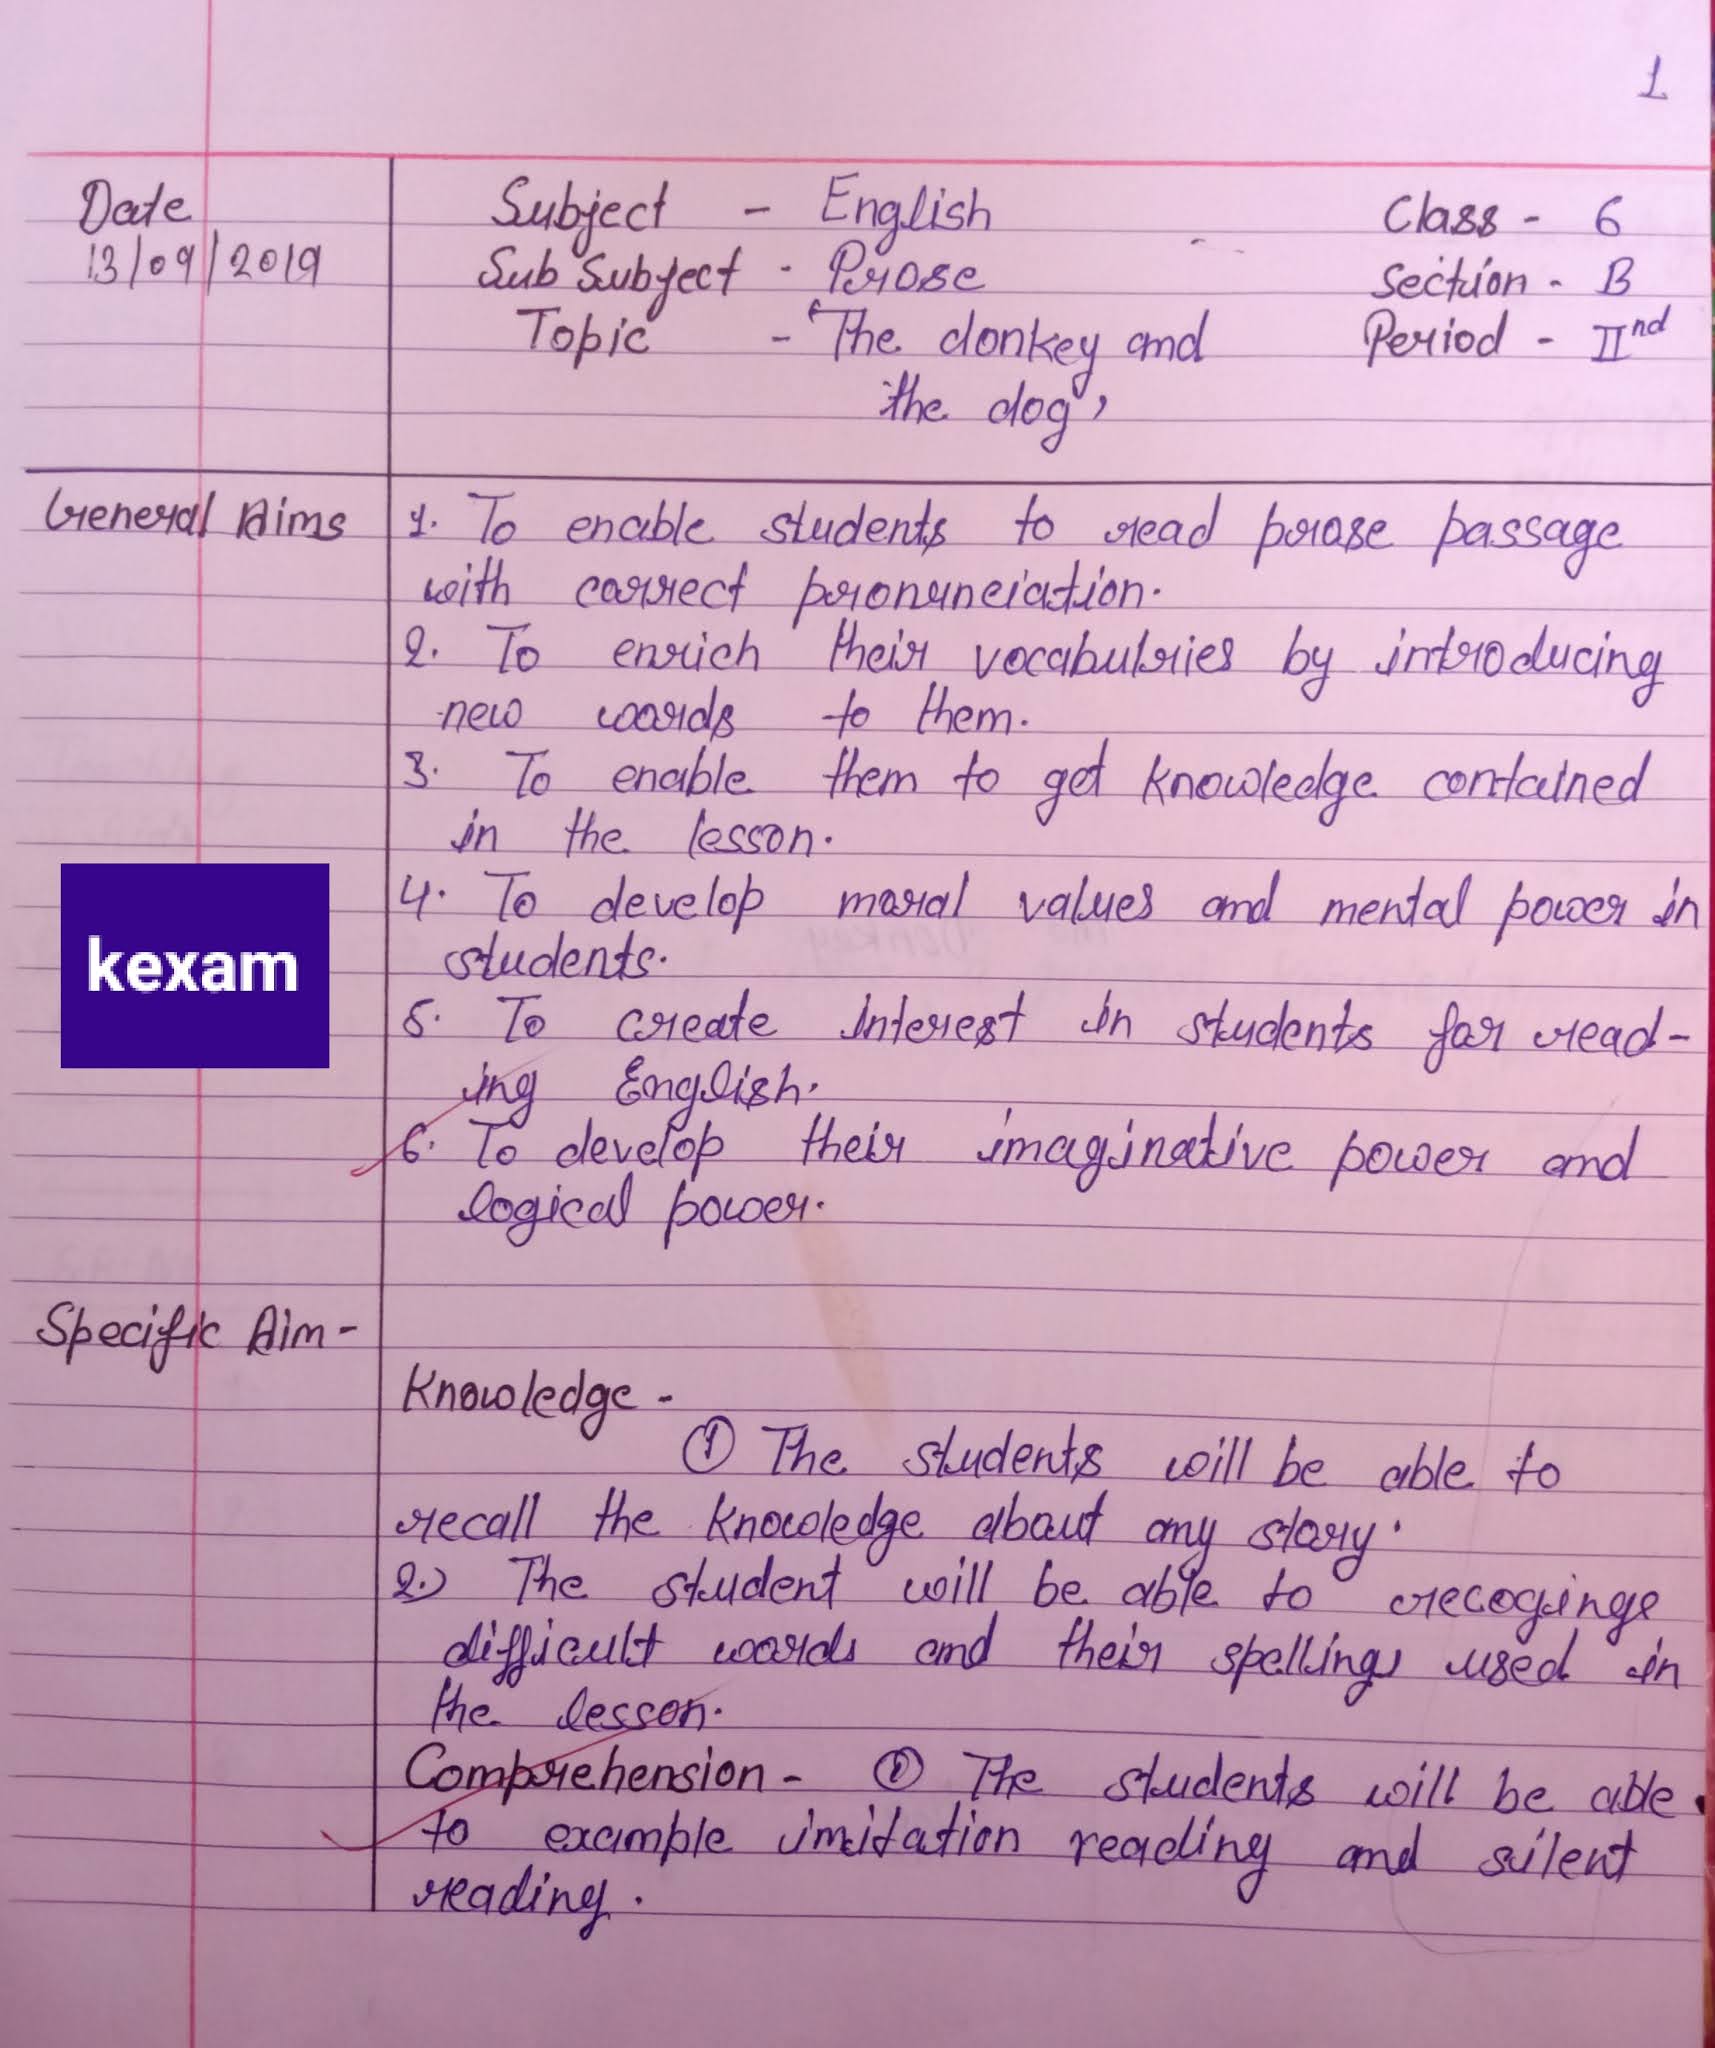 1
Date
13/09/2019
Subject - English
Class - 6
Sub Subject - Prose
Section - B
Topic - "The donkey and
Period - IInd
the dog"
General Aims
1. To enable students to read prose passage
with correct pronunciation.
2. To enrich their vocabulries by introducing
new words to them.
3. To enable them to get knowledge contained
in the lesson.
4. To develop moral values and mental power in
students.
kexam
5. To create interest in students for read-
ing English.
6. To develop their imaginative power and
logical power.
Specific Aim -
Knowledge -
① The students will be able to
recall the knowledge about any story.
2.) The student will be able to recoginge
difficult words and their spellings used in
the lesson.
Comprehension - ① The students will be able
to example imitation reading and silent
reading.